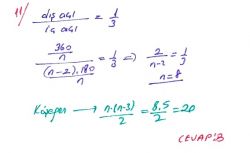 11) dış açı / iç açı = 1/3
360/n / (n-2).180/n = 1/3 => 2/n-2 = 1/3
n=8
Köşegen → n.(n-3)/2 = 8.5/2 = 20
CEVAP:B